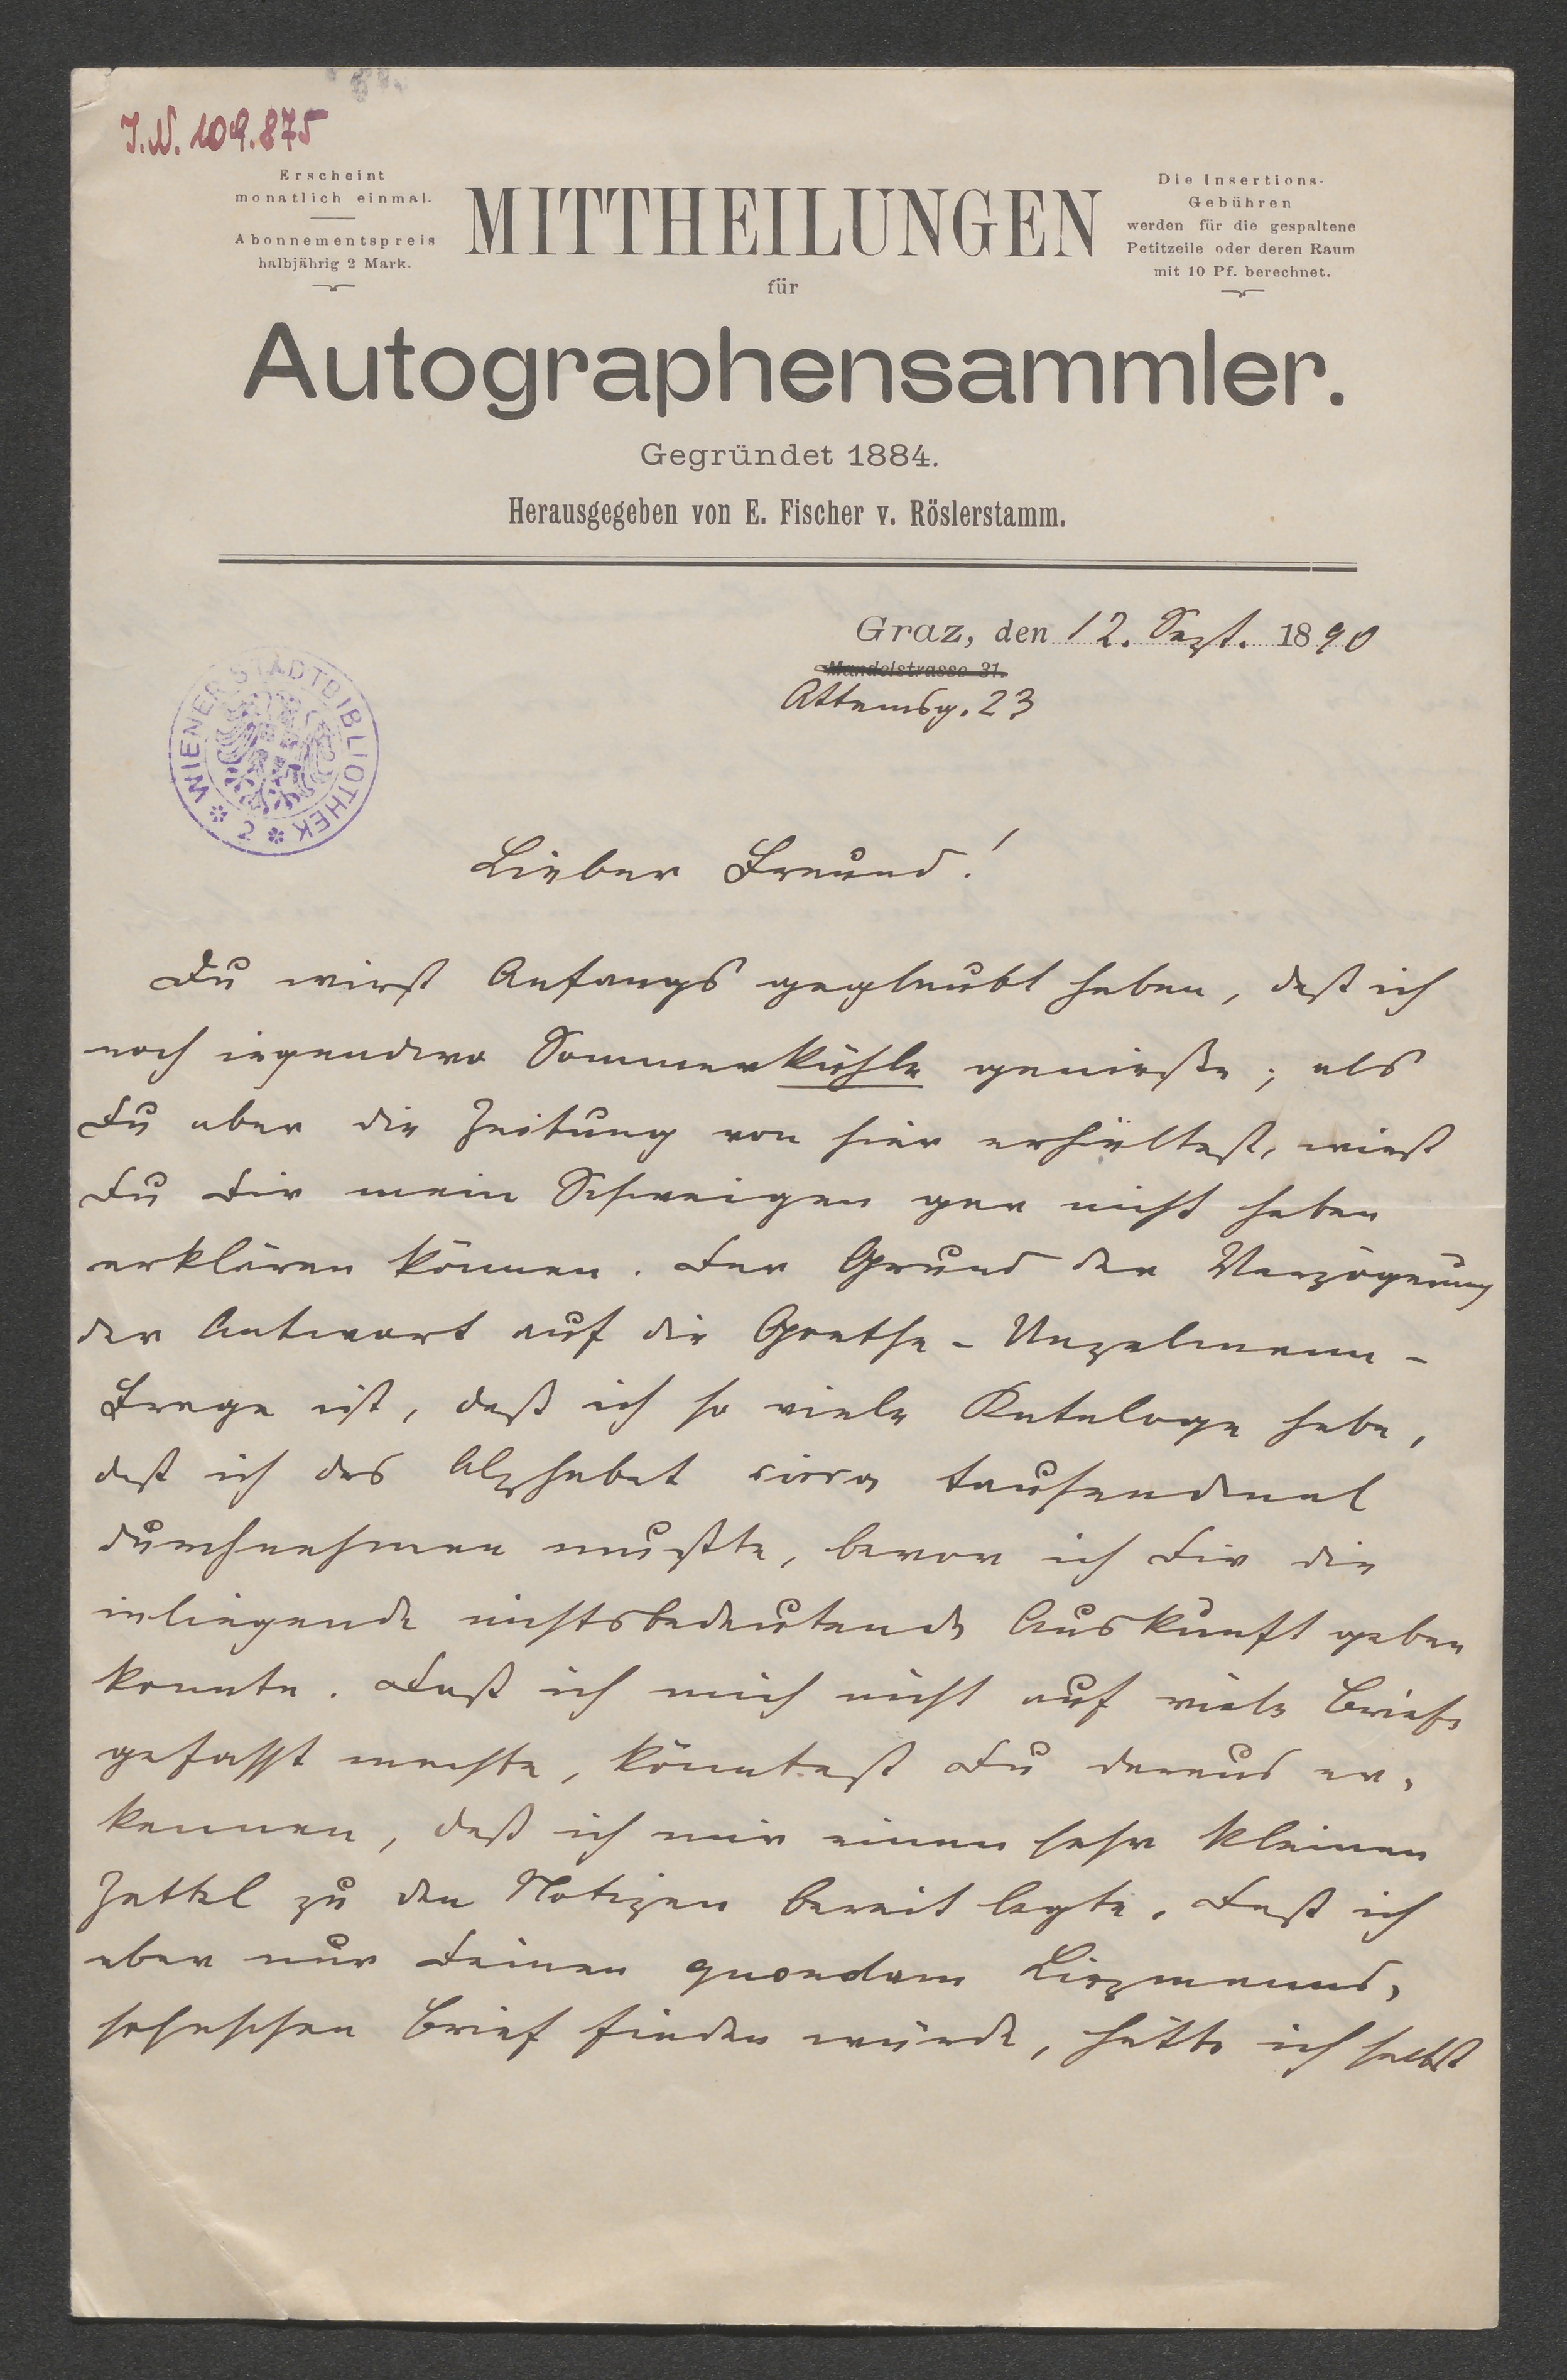 J.N. 109.875
Erscheint
monatlich einmal.
Abonnementspreis
halbjährig 2 Mark.
MITTHEILUNGEN
Die Insertions-
Gebühren
werden für die gespaltene
Petitzeile oder deren Raum
mit 10 Pf. berechnet.
für
Autographensammler.
Gegründet 1884.
Herausgegeben von E. Fischer v. Röslerstamm.
Graz, den 12. Sept. 1890
Mandelstrasse 31.
Attemsg. 23
WIENER STADTBIBLIOTHEK
2
Lieber Freund!
Du wirst Anfangs geglaubt haben, daß ich
noch irgendwo Sommerkühle genieße; als
Du aber die Zeitung von hier erhieltest, wirst
Du Dir mein Schweigen gar nicht haben
erklären können. Der Grund der Verzögerung
der Antwort auf die Goethe-Unzelmann-
Frage ist, daß ich so viele Kataloge habe,
daß ich das Alphabet circa tausendmal
durchnehmen mußte, bevor ich Dir die
inliegende nichtsbedeutende Auskunft geben
konnte. Daß ich mich nicht auf viele Briefe
gefasst machte, könntest Du daraus er-
kennen, daß ich mir einen sehr kleinen
Zettel zu den Notizen bereit legte. Daß ich
aber nur Deinen quondam
Brief finden würde, hätte ich selbst